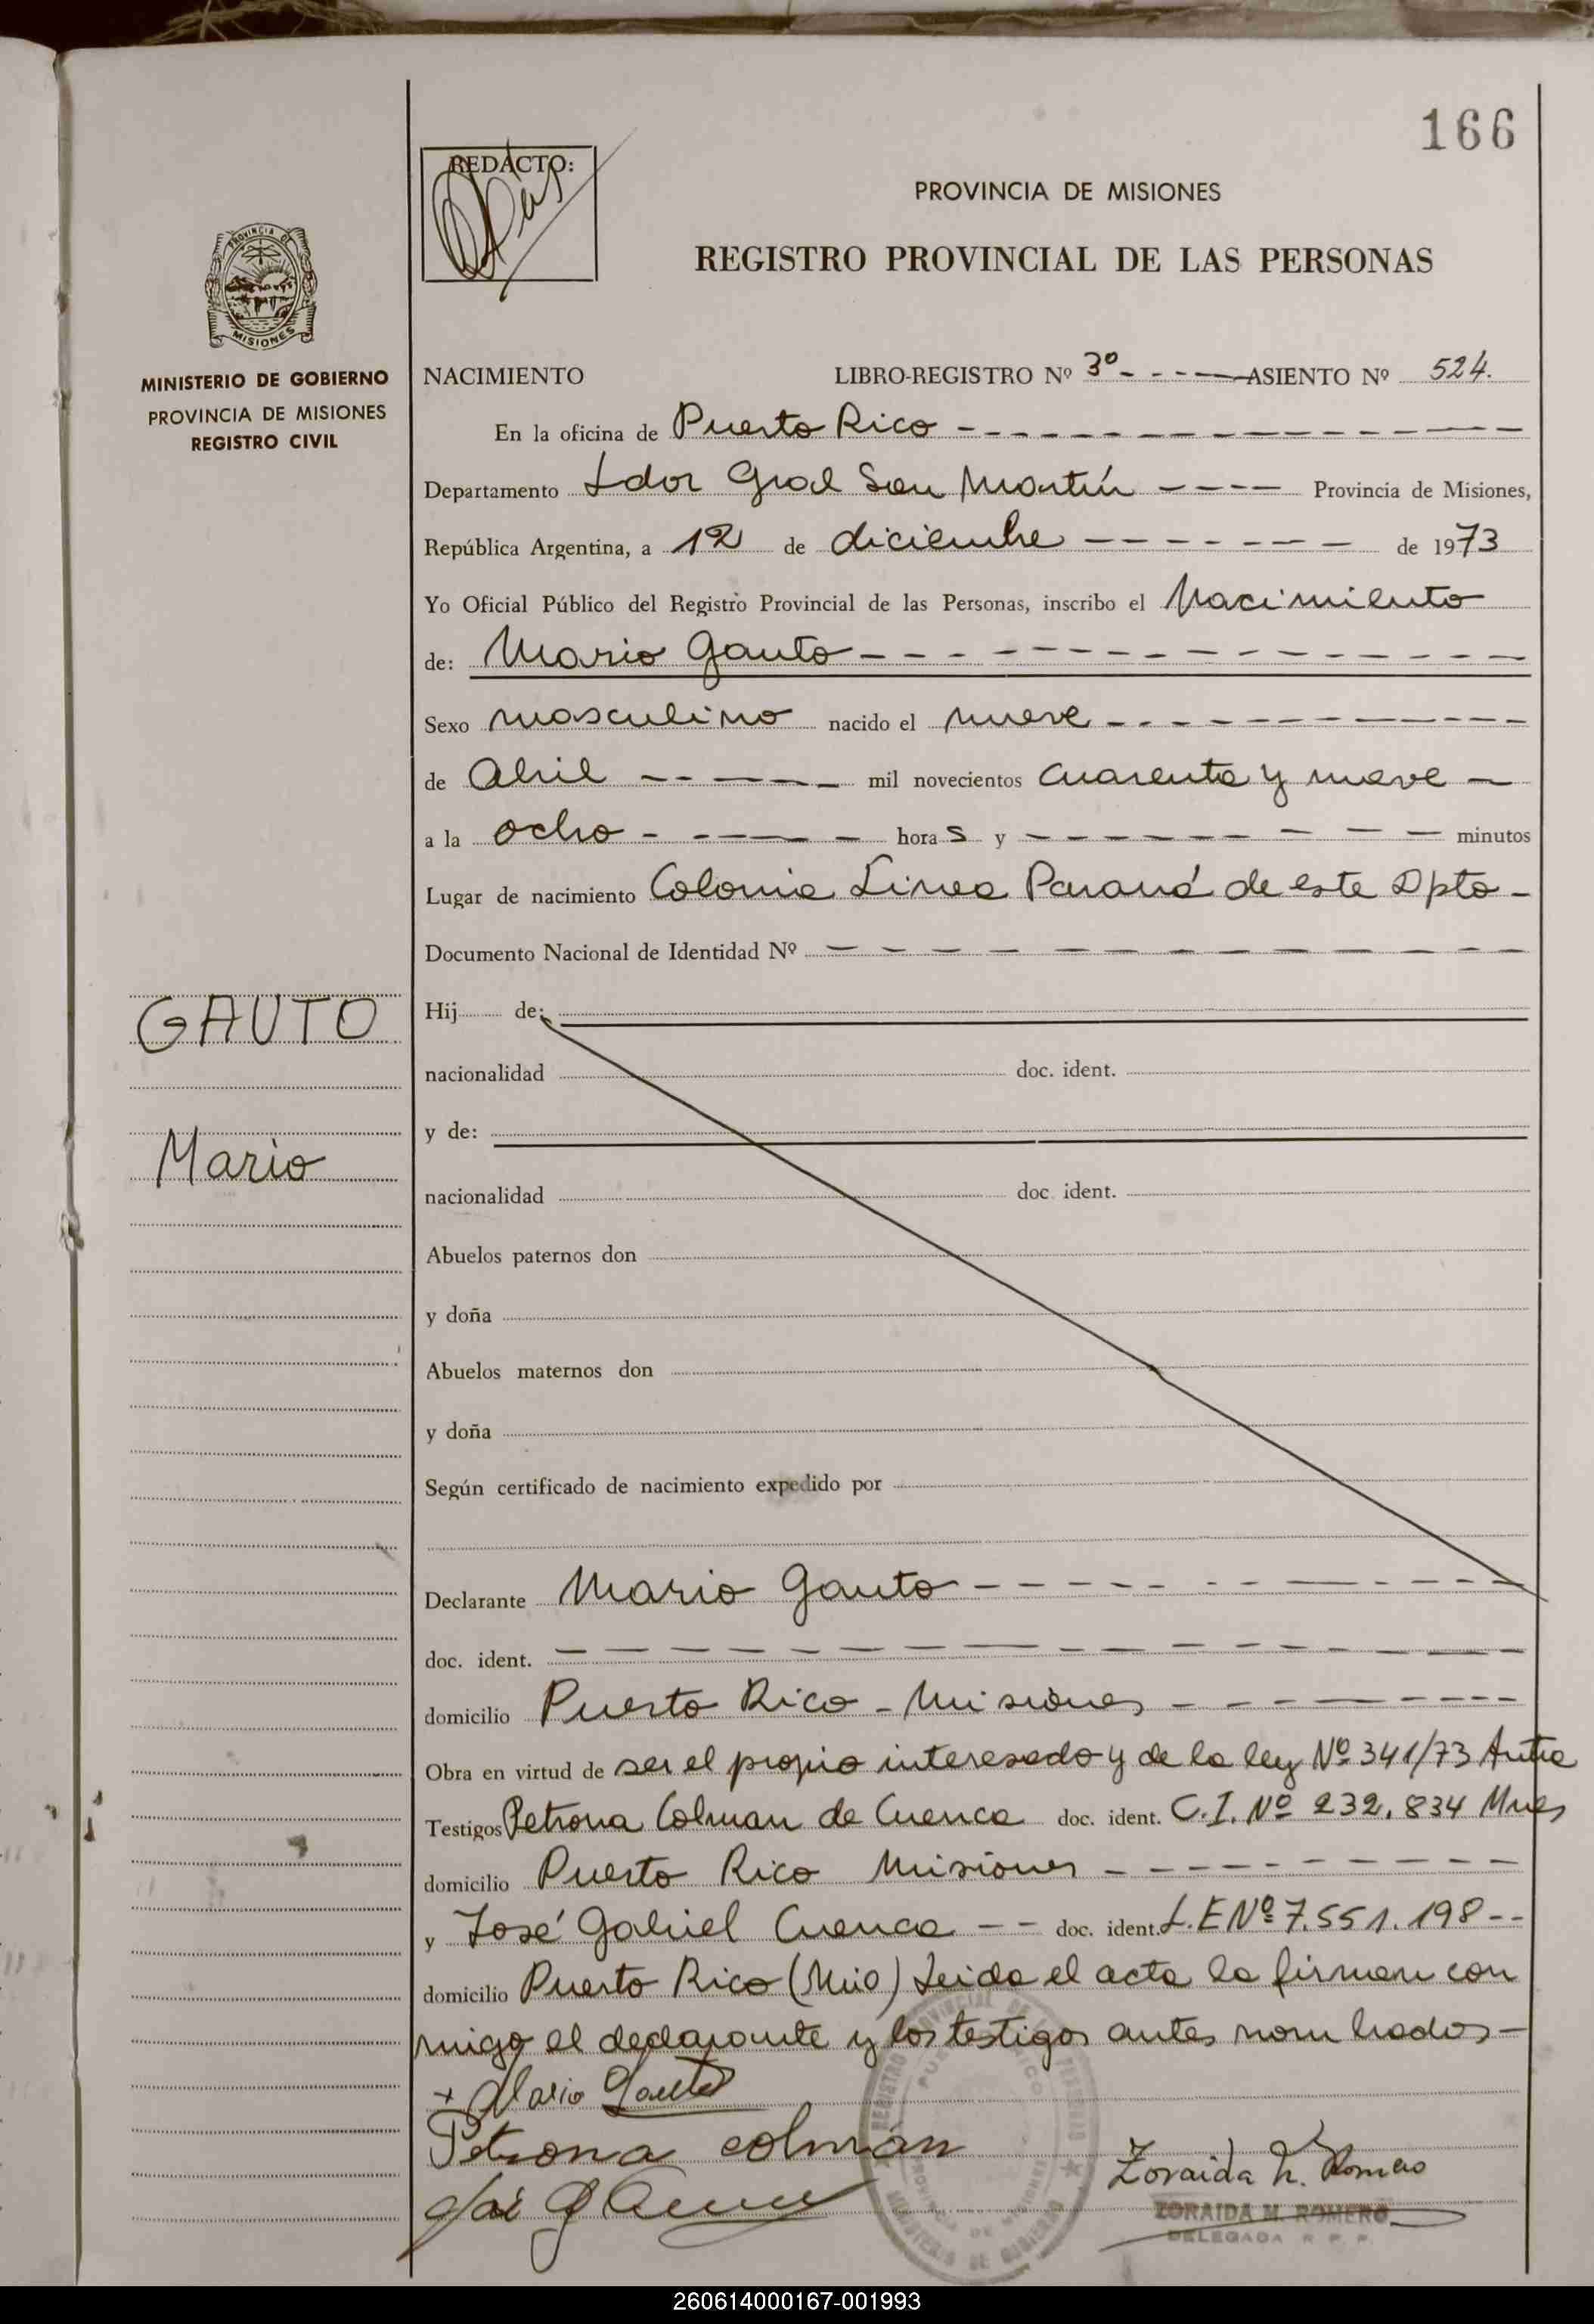 166
REDACTO:
PROVINCIA DE MISIONES
REGISTRO PROVINCIAL DE LAS PERSONAS
PROVINCIA DE
MISIONES
MINISTERIO DE GOBIERNO
PROVINCIA DE MISIONES
REGISTRO CIVIL
NACIMIENTO LIBRO-REGISTRO Nº 3º - - - - ASIENTO Nº 524.
En la oficina de Puerto Rico
Departamento Ldor Gral San Martín - - - - Provincia de Misiones,
República Argentina, a 12 de diciembre - - - - - - - de 1973
Yo Oficial Público del Registro Provincial de las Personas, inscribo el Nacimiento
de: Mario Gauto
Sexo masculino nacido el nueve
de Abril - - - - - mil novecientos cuarenta y nueve -
a la ocho - - - - - horas y - - - - - - - - minutos
Lugar de nacimiento Colonia Linea Paraná de este Dpto -
Documento Nacional de Identidad Nº
GAUTO
Mario
Hij de:
nacionalidad doc. ident.
y de:
nacionalidad doc. ident.
Abuelos paternos don
y doña
Abuelos maternos don
y doña
Según certificado de nacimiento expedido por
Declarante Mario Gauto
doc. ident.
domicilio Puerto Rico - Misiones
Obra en virtud de ser el propio interesado y de la ley Nº 341/73 Autra
Testigos Petrona Colman de Cuenca doc. ident. C.I. Nº 232.834 Mnes
domicilio Puerto Rico Misiones
y José Gabriel Cuenca - - doc. ident. L.E Nº 7.551.198 - -
domicilio Puerto Rico (Mio) Leida el acta la firman con
migo el declarante y los testigos antes nombrados -
+ Mario Gauto
Petrona colmán
Zoraida N. Romero
ZORAIDA N. ROMERO
DELEGADA R. P. P.
260614000167-001993